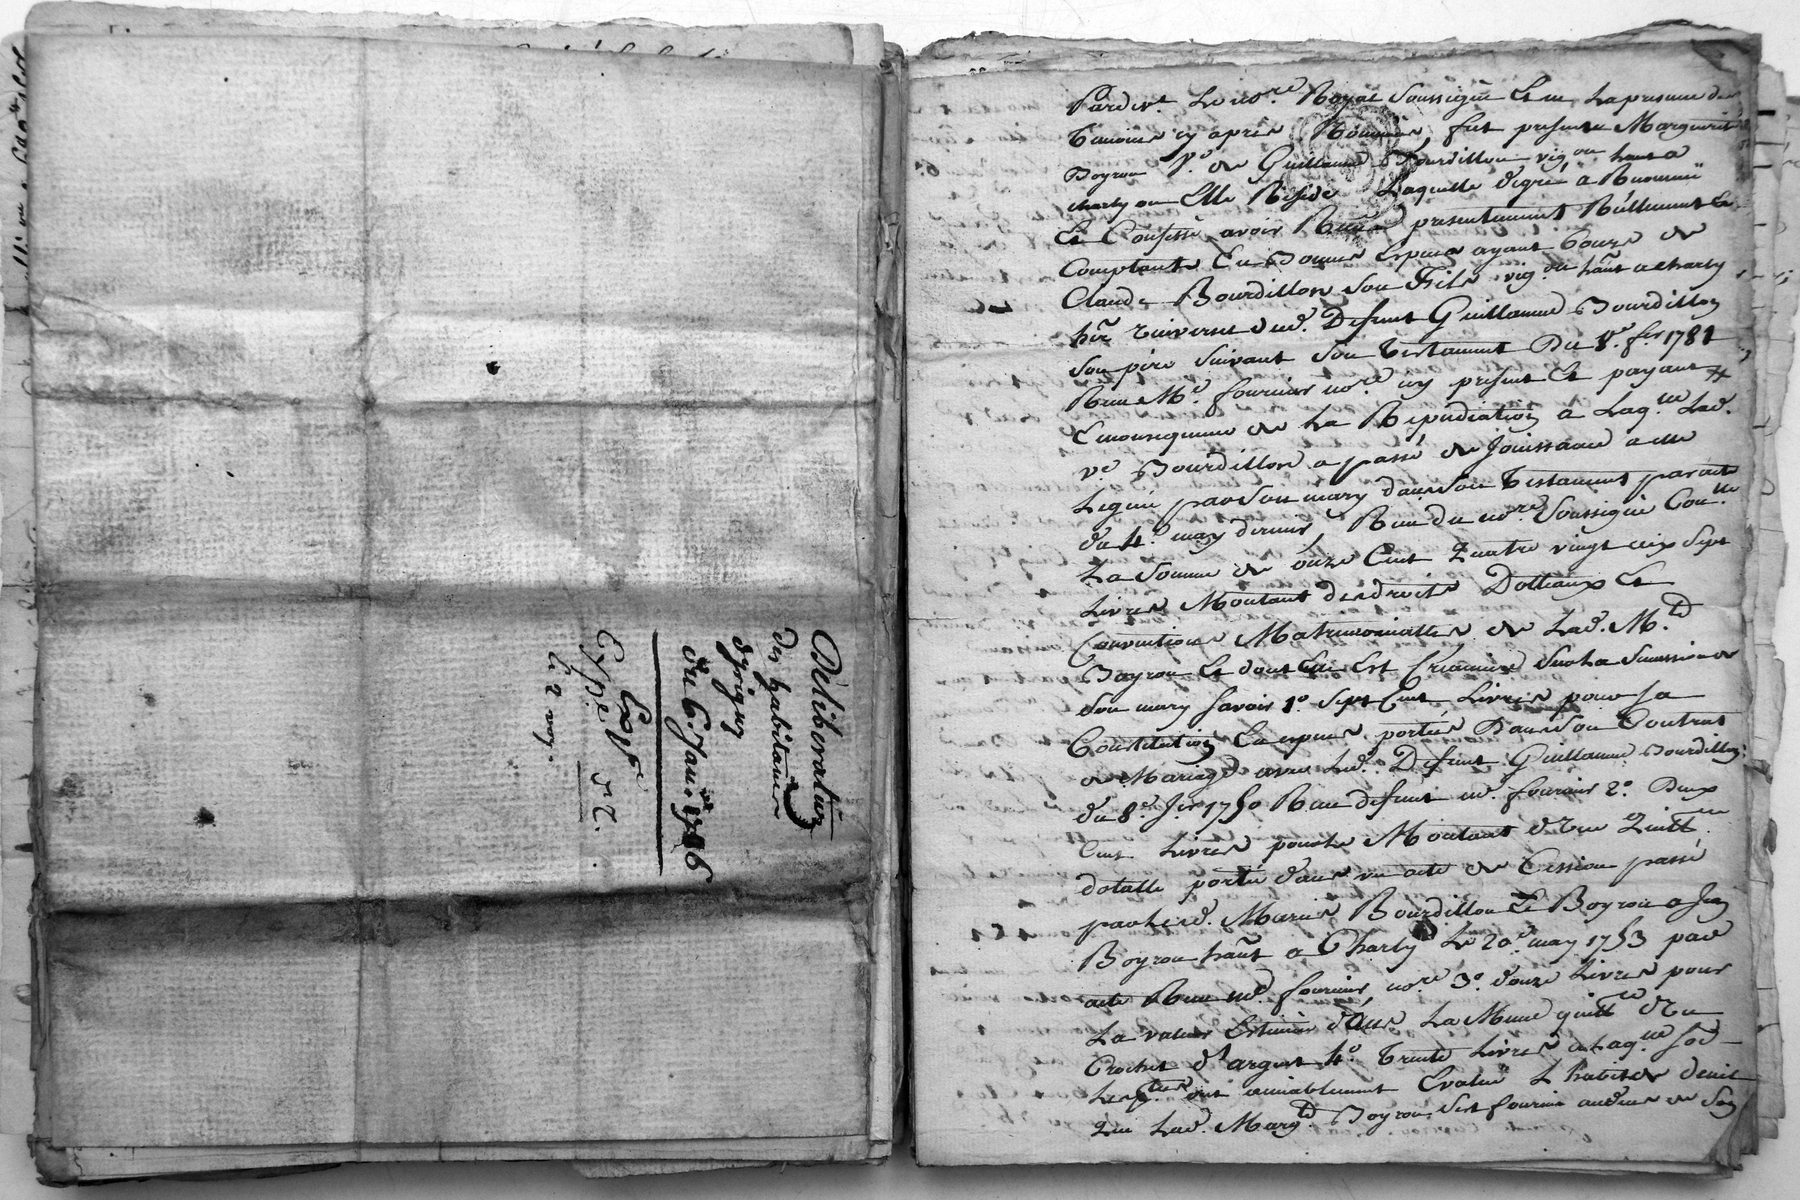 Délibération
des habitans
d'yrigny
du 6. Janv. 1786
Expé
Le 2 may.
Pardevt Le nore Royal soussigné Et en La presence des
temoins cy après Nommés, fut presente Marguerite
Boyron Ve. de Guillaume Bourdillon vigon hant a
charly ou Elle Reside Laquelle degré a Reconnu
Et Confessé avoir Recu presentement Réellement Et
Comptant En Bonnes Especes ayant Cours de
Claude Bourdillon son Fils vigon hãnt a charly
hér. universel dud. Defunt Guillaume Bourdillon
son père suivant son testament Du 8e. fer 1781
Recu Me. fournier nore cy present Et payant
Ensuequence de La Repudiation a Laqle Lad.
ve Bourdillon a passé de jouissance a elle
Legué par son mary dans son testament par acte
du 4e. may dernier, Recu du nore soussigné Con.lle
La somme de onze Cent Quatre vingt dix sept
Livres Montant des droits Dotteaux Et
Conventions Matrimonialles de Lad. Mte
Boyron Et dont Elle Est Créancière sur La succession de
son mary savoir 1o. sept Cent Livres pour sa
Constitution En espèces portée Dans son Contrat
de Mariage avec Led. Defunt Guillaume Bourdillon
du 8e. Jer 1750 Recu defunt Me. fournier 2o. Deux
Cent Livres pour Le Montant d'Une Quittce
dotalle portée dans un acte de Cession passé
par Lesd. Mariés Bourdillon Et Boyron a Jean
Boyron hãnt a Charly Le 20e. may 1753 par
acte Recu Me. fournier, nore 3o. douze Livres pour
La valeur Estimée dans La Même quittce d'Un
Crochet d'argent 4o. trente Livres a Laqle so
Les Pties ont amiablement Evalué L'habit de deuil
que Lad. Margte Boyron s'est fournie au deces de son